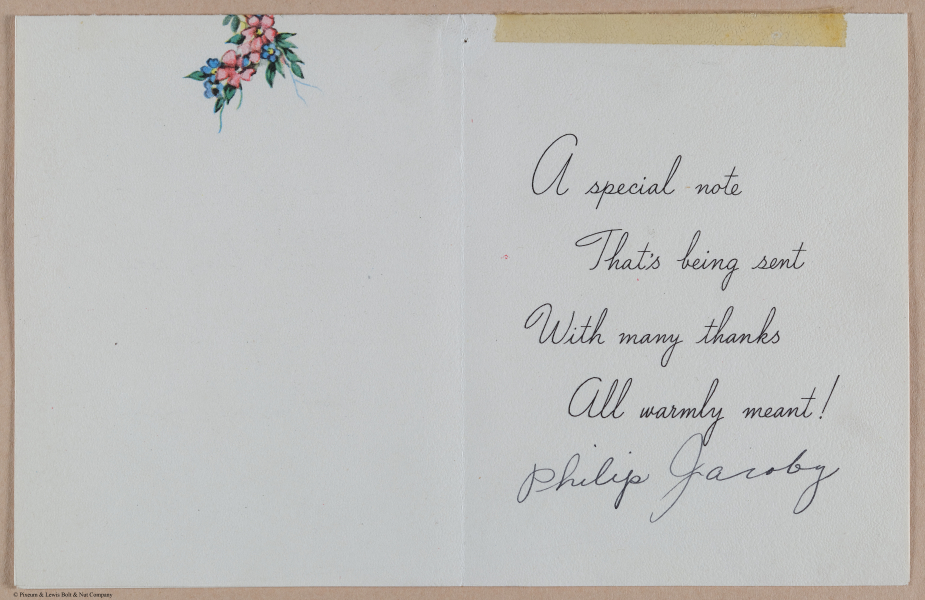 A special note
That's being sent
With many thanks
All warmly meant!
Philip Jacoby
© Pixeum & Lewis Bolt & Nut Company